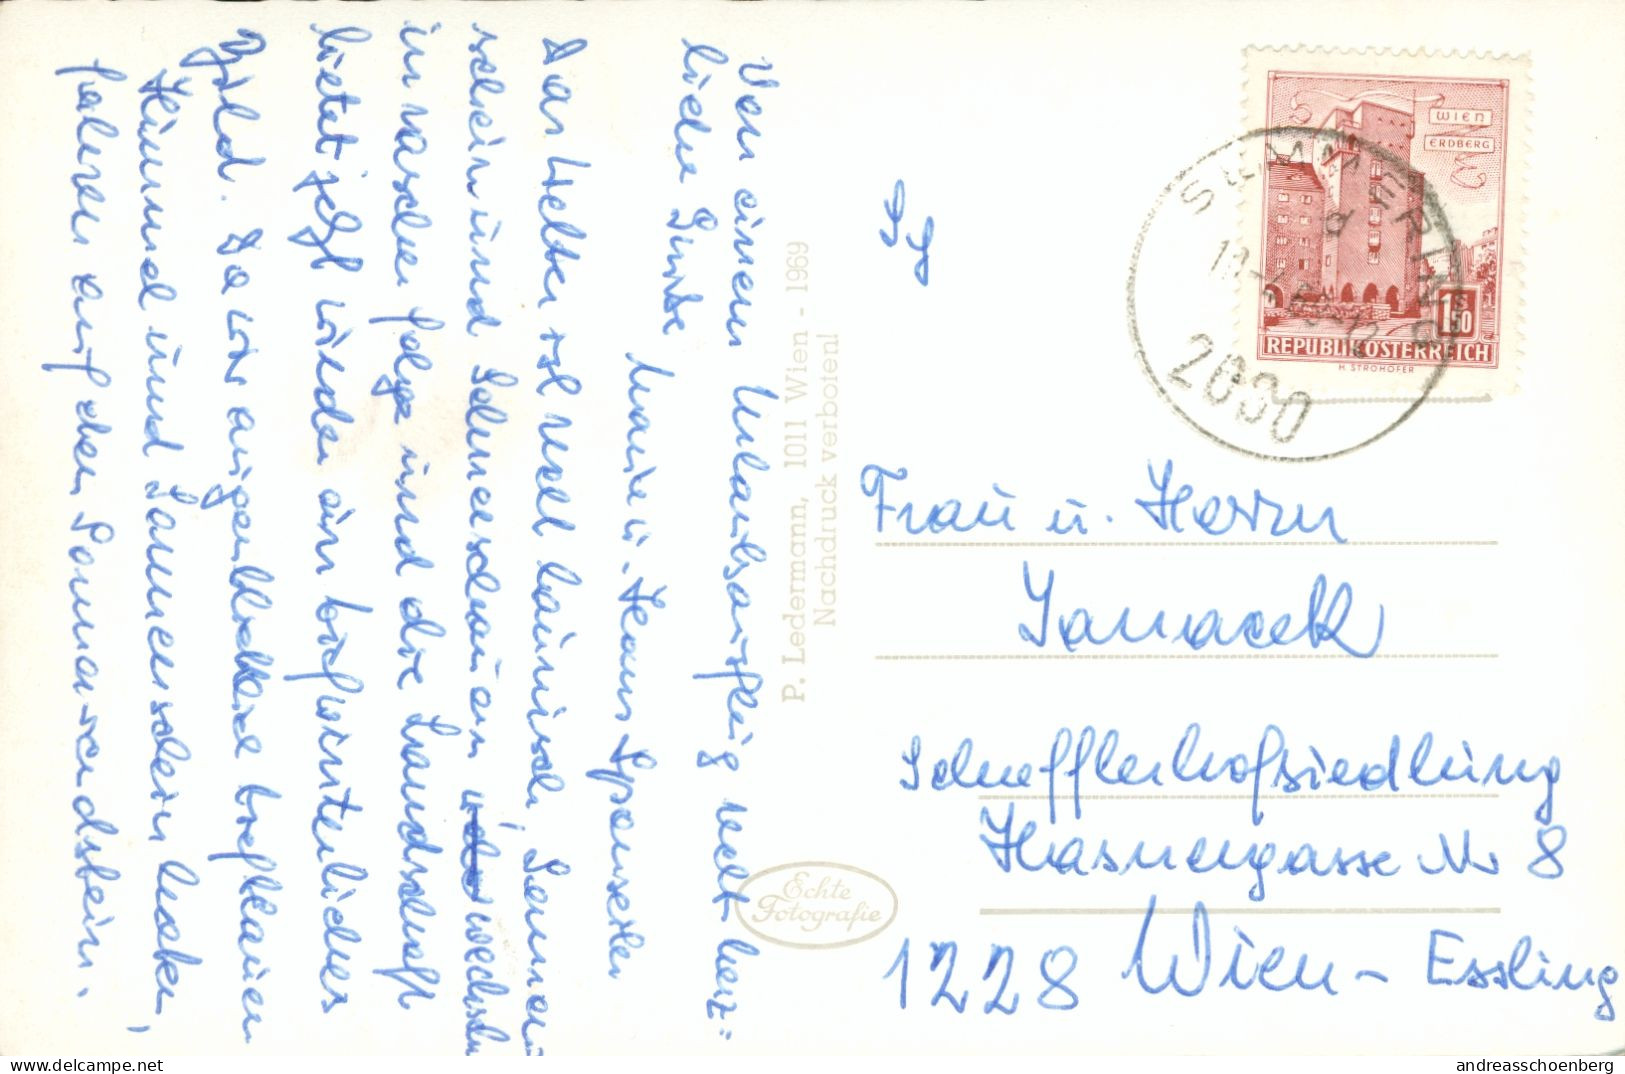 Von einem Urlaubsausflug recht herz=
liche Grüße
Marie u. Hans
Das Wetter ist recht launisch, Sonnen=
schein und Schneeschauer wechseln
in rascher Folge und die Landschaft
bietet jetzt wieder ein winterliches
Bild. Da wir augenblicklich blauen
Himmel und Sonnenschein haben,
fahren wir auf den Sonnwendstein.
P. Ledermann, 1011 Wien - 1969
Nachdruck verboten!
Echte
Fotografie
WIEN
ERDBERG
1.50
REPUBLIK ÖSTERREICH
H. STROHOFER
SEMMERING
d
2680
Frau u. Herrn
Janacek
Schefflerhofsiedlung
Hasnergasse Nr 8
1228 Wien - Essling
hippostcard.com
andreasschoenberg